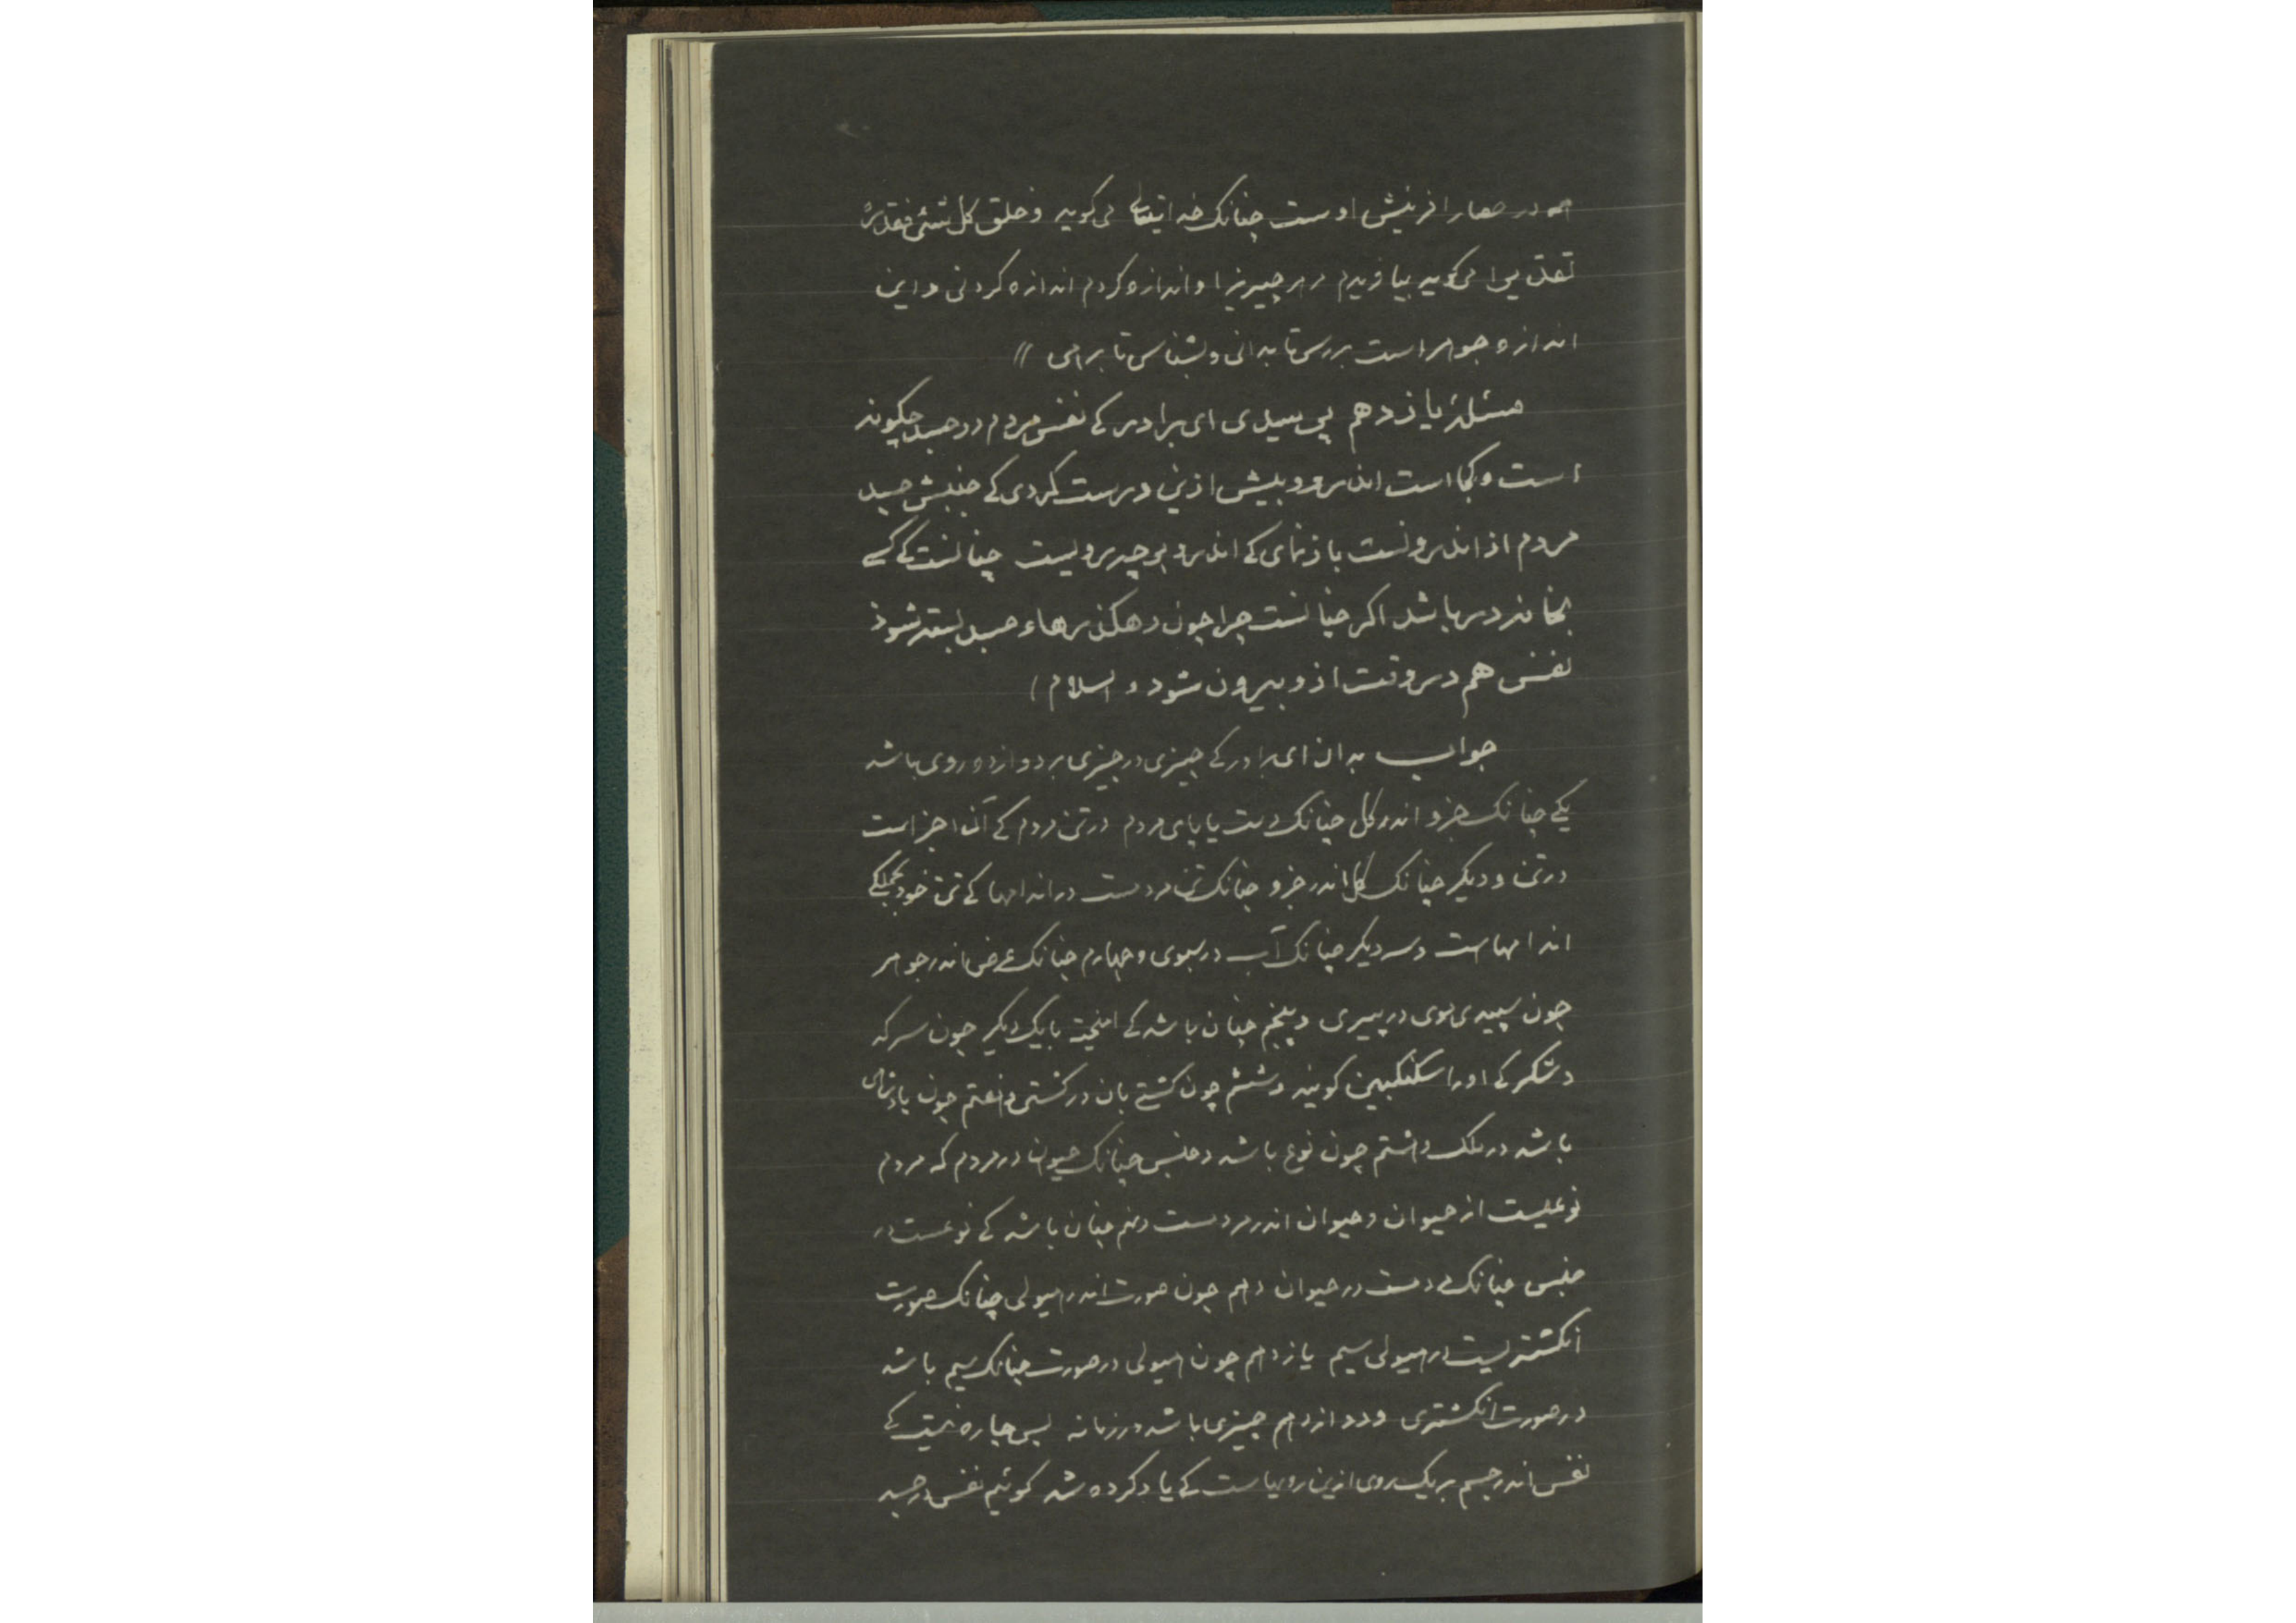 همه در حصار افرینش اوست چنانک خدایتعالی می‌کوید وخلق کل شئی فقدره
تقدیرا می کوید بیافریدم هر چیزیرا و اندازه کردم اندازه کردنی و این
اندازه جوهر است بررس تا بدانی و بشناس تا برهی //
مسئلهٔ یازدهم پرسیدی ای برادر کے نفس مردم در جسد چکونه
است و کجا است اندرو و پیش ازین درست کردی کے جنبش جسد
مردم از اندرونست بازنمای کے اندرو بر چه رویست چنانست کے کسے
بخانه در باشد اکر چنانست چرا چون رهکذرهاء جسد بسته شوذ
نفس هم در وقت ازو بیرون شود و السلام )
جواب بدان ای برادر کے چیزی در چیزی بر دوازده روی باشد
یکے چنانک جزو اندر کل چنانک دست یا پای مردم در تن مردم کے آن اجزاست
در تن و دیکر چنانک کل اندر جزو چنانک تن مردمست در اندامها کے تن خود بجملکے
اندامهاست و سدیکر چنانک آب در سبوی و چهارم چنانک عرض اندر جوهر
چون سپیدی موی در پیری و پنجم چنان باشد کے امیخته با یک دیکر چون سرکه
و شکر کے او را سکنکبین کویند و ششم چون کشتے بان در کشتی و هفتم چون پادشاهی
باشد در ملک و هشتم چون نوع باشد و جنس چنانک حیوان در مردم که مردم
نوعیست از حیوان و حیوان اندر مردمست و نهم چنان باشد کے نوعست در
جنس چنانک مردمست در حیوان دهم چون صورت اندر هیولی چنانک صورت
انکشتریست در هیولی سیم یازدهم چون هیولی در صورت چنانک سیم باشد
در صورت انکشتری و دوازدهم چیزی باشد در زمانه پس چاره نیست کے
نفس اندر جسم بر یک روی ازین رویهاست کے یاد کرده شد کوئیم نفس در جسد